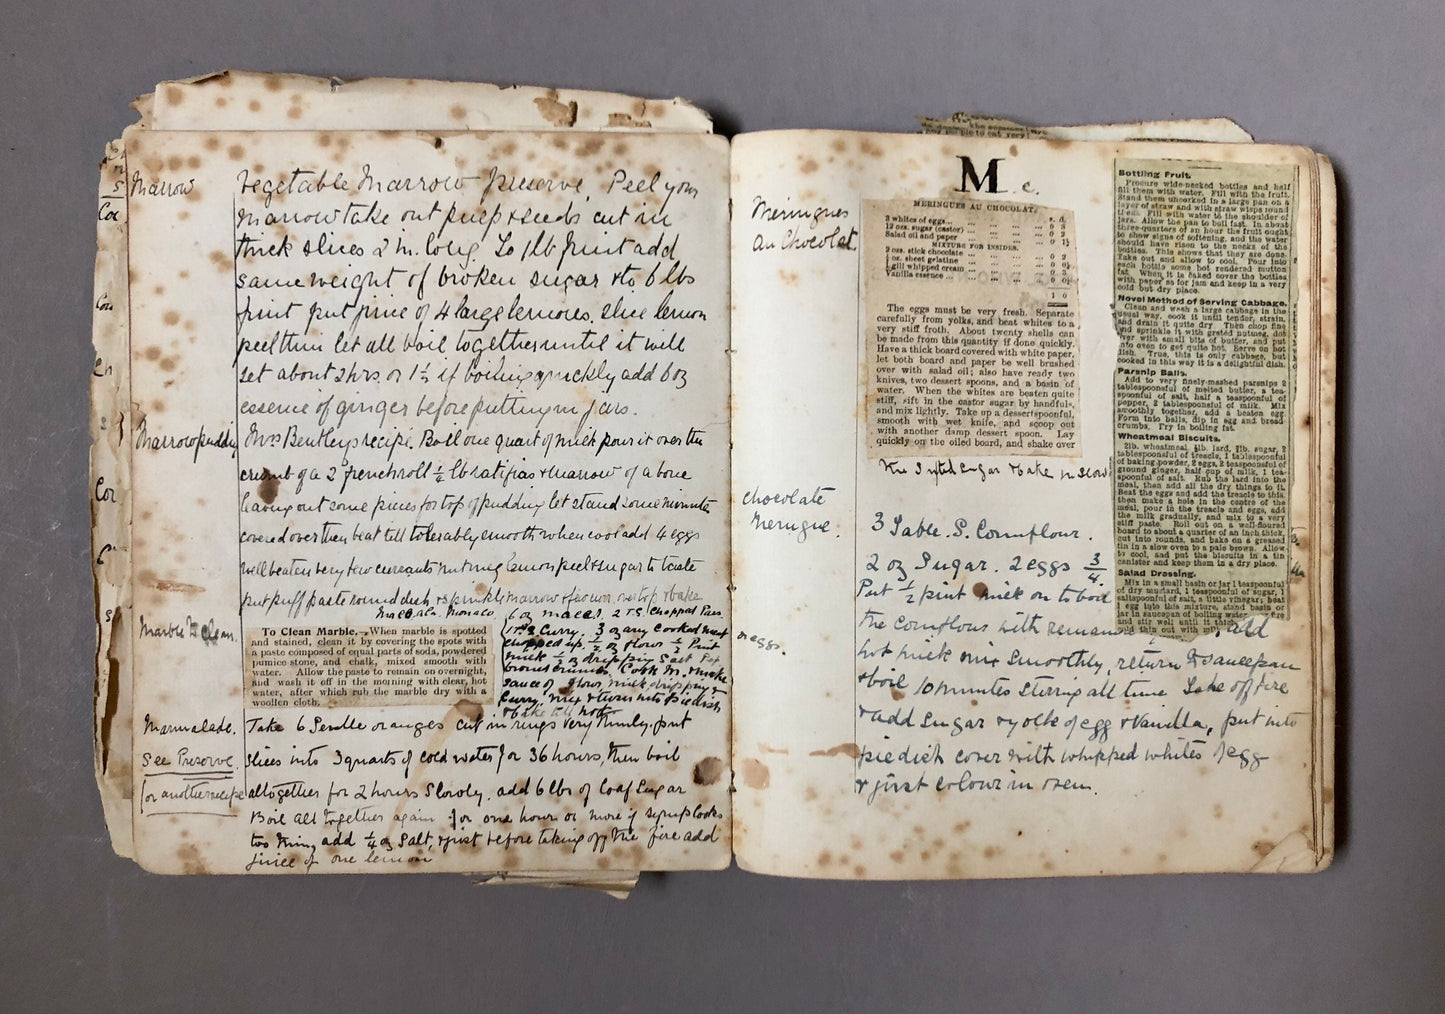 Marrow
Vegetable Marrow Preserve. Peel your
marrow take out pulp & seeds cut in
thick slices 2 in. long. To 1 lb fruit add
same weight of broken sugar & to 6 lbs
fruit put juice of 4 large lemons, slice lemon
peel thin let all boil together until it will
set about 2 hrs. or 1½ if boiling quickly add 6 oz
essence of ginger before putting in jars.
Marrow pudding
Mrs Bentleys recipe. Boil one quart of milk pour it over the
crumb of a 2d french roll ½ lb ratifias & marrow of a bone
leaving out some pieces for top of pudding let stand some minutes
covered over then beat till tolerably smooth when cool add 4 eggs
well beaten very few currants nutmeg lemon peel & sugar to taste
put puff paste round dish & sprinkle marrow over top & bake
Marble to clean.
To Clean Marble.—When marble is spotted
and stained, clean it by covering the spots with
a paste composed of equal parts of soda, powdered
pumice stone, and chalk, mixed smooth with
water. Allow the paste to remain on overnight,
and wash it off in the morning with clear, hot
water, after which rub the marble dry with a
woollen cloth.
6 oz macca. 2 T.S. Chopped
Curry. 3 oz any cooked meat
chopped up, ½ oz flour ½ Pint
milk ½ oz dripping Salt Pep
bread crumbs. Cook M. make
sauce of flour, milk dripping &
curry, mix & turn into piedish
& bake till hot
Marmalade.
See Preserve
for another recipe
Take 6 Seville oranges cut in rings very thinly. put
slices into 3 quarts of cold water for 36 hours, then boil
altogether for 2 hours slowly. add 6 lbs of loaf sugar
Boil all together again for one hour or more if syrup looks
too thin, add ¼ oz Salt, & just before taking off the fire add
juice of one lemon
M
Meringues
au Chocolat
MERINGUES AU CHOCOLAT.
s. d.
3 whites of eggs... ... ... ... 0 3
12 ozs. sugar (castor) ... ... ... 0 3
Salad oil and paper ... ... ... 0 1½
MIXTURE FOR INSIDES.
2 ozs. stick chocolate ... ... ... 0 2
½ oz. sheet gelatine ... ... ... 0
gill whipped cream ... ... ... 0
Vanilla essence ... ... ... ... 0 0½
1 0
The eggs must be very fresh. Separate
carefully from yolks, and beat whites to a
very stiff froth. About twenty shells can
be made from this quantity if done quickly.
Have a thick board covered with white paper,
let both board and paper be well brushed
over with salad oil; also have ready two
knives, two dessert spoons, and a basin of
water. When the whites are beaten quite
stiff, sift in the castor sugar by handfuls,
and mix lightly. Take up a dessertspoonful,
smooth with wet knife, and scoop out
with another damp dessert spoon. Lay
quickly on the oiled board, and shake over
sifted sugar & bake in slow
Chocolate
Meringue.
3 Table. S. Cornflour.
2 oz Sugar. 2 eggs
Put ½ pint milk on to boil
the cornflour with
add
hot milk mix smoothly, return to saucepan
& boil 10 minutes stirring all time Take off fire
& add Sugar & yolk of egg & Vanilla, put into
piedish cover with whipped whites of egg
& just colour in oven.
Bottling Fruit.
Procure wide-necked bottles and half
fill them with water. Fill with the fruit.
Stand them uncorked in a large pan on a
layer of straw and with straw wisps round
them. Fill with water to the shoulder of
jars. Allow the pan to boil fast. In about
three-quarters of an hour the fruit ought
to show signs of softening, and the water
should have risen to the necks of the
bottles. This shows that they are done.
Take out and allow to cool. Pour into
each bottle some hot rendered mutton
fat. When it is caked cover the bottles
with paper as for jam and keep in a very
cold but dry place.
Novel Method of Serving Cabbage.
Clean and wash a large cabbage in the
usual way, cook it until tender, strain,
and drain it quite dry. Then chop fine
and sprinkle with grated nutmeg, dot
over with small bits of butter, and put
into oven to get quite hot. Serve on hot
dish. True, this is only cabbage, but
cooked in this way it is a delightful dish.
Parsnip Balls.
Add to very finely-mashed parsnips 2
tablespoonsful of melted butter, a tea-
spoonful of salt, half a teaspoonful of
pepper, 2 tablespoonsful of milk. Mix
smoothly together, add a beaten egg.
Form into balls, dip in egg and bread-
crumbs. Fry in boiling fat.
Wheatmeal Biscuits.
2lb. wheatmeal, ½lb. lard, ½lb. sugar, 2
tablespoonsful of treacle, 1 tablespoonful
of baking powder, 2 eggs, 2 teaspoonsful of
ground ginger, half cup of milk, 1 tea-
spoonful of salt. Rub the lard into the
meal, then add all the dry things to it.
Beat the eggs and add the treacle to this,
then make a hole in the centre of the
meal, pour in the treacle and eggs, add
the milk gradually, and mix to a very
stiff paste. Roll out on a well-floured
board to about a quarter of an inch thick,
cut into rounds, and bake on a greased
tin in a slow oven to a pale brown. Allow
to cool, and put the biscuits in a tin
canister and keep them in a dry place.
Salad Dressing.
Mix in a small basin or jar 1 teaspoonful
of dry mustard, 1 teaspoonful of sugar, ½
saltspoonful of salt, a little vinegar; beat
1 egg up into this mixture, stand basin or
jar in saucepan of boiling water,
and stir well until it thickens
thin out with